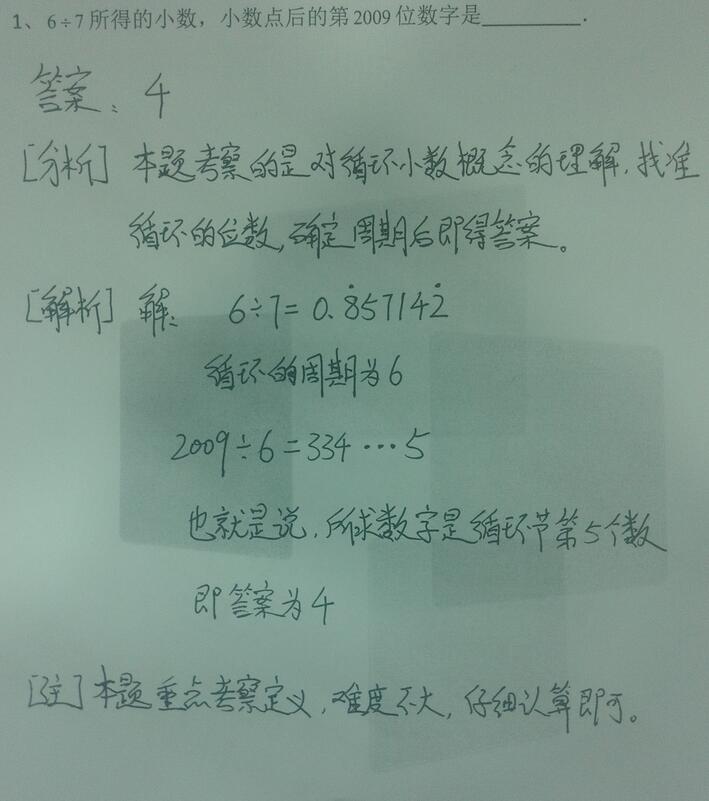 1、6÷7所得的小数，小数点后的第2009位数字是________.
答案：4
[分析] 本题考察的是对循环小数概念的理解，找准
循环的位数，确定周期后即得答案。
[解析] 解： 6÷7=0.8̇57142̇
循环的周期为6
2009÷6=334…5
也就是说，所求数字是循环节第5个数
即答案为4
[注]本题重点考察定义，难度不大，仔细认算即可。